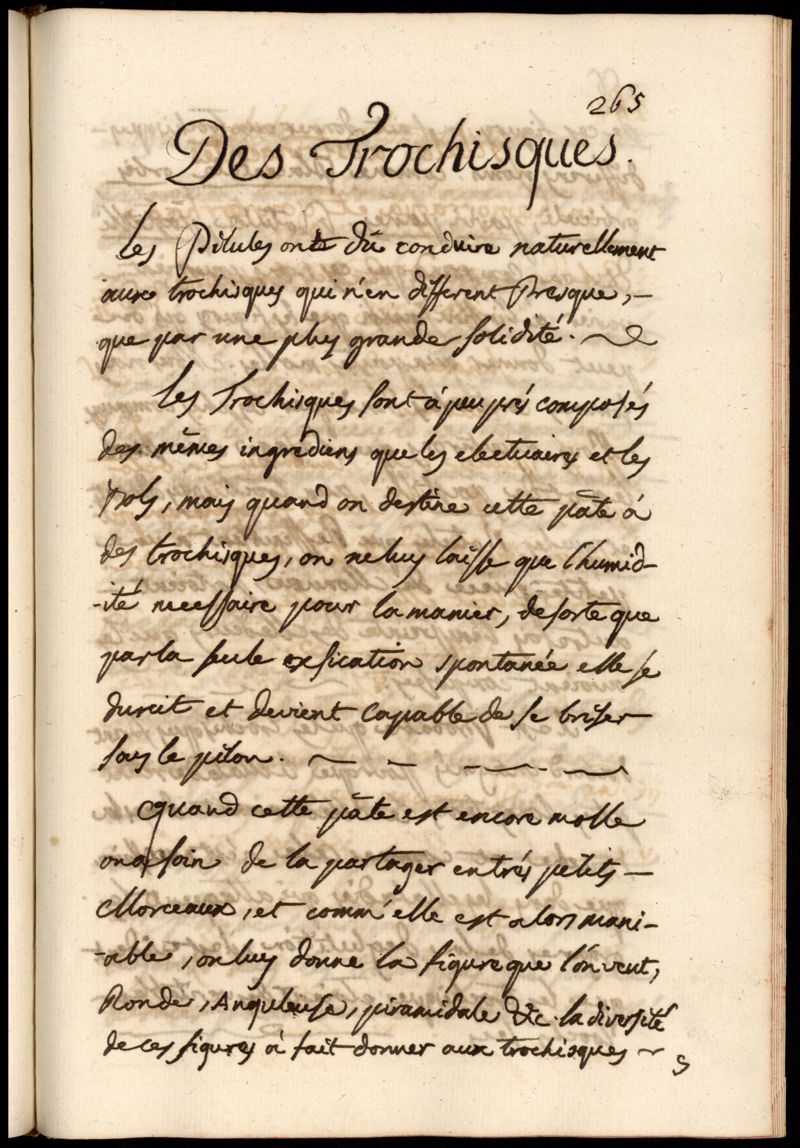 265
Des Trochisques.
Les Pilules ont dû conduire naturellement
aux trochisques qui n'en different Presque, –
que par une plus grande solidité.
Les Trochisques sont à peu prés composés
des mêmes ingrediens que les electuaires et les
Bols, mais quand on destine cette pâte à
des trochisques, on ne luy laisse que l'humid-
-ité necessaire pour la manier, de sorte que
par la seule exsication spontanée elle se
durcit et devient Capable de se briser
sous le pilon.
Quand cette pâte est encore molle
on a soin de la partager en trés petits –
Morceaux, et comm' elle est alors mani-
-able, on luy donne la figure que l'on veut,
Ronde, Anguleuse, piramidale &c. la diversité
de ces figures à fait donner aux trochisques ~